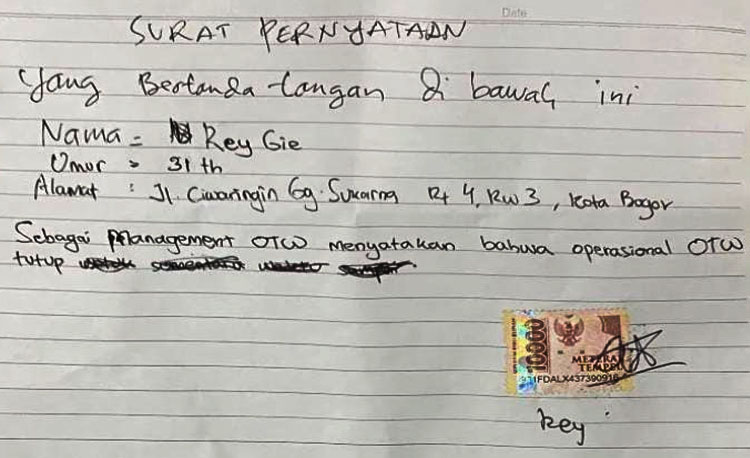 Date
SURAT PERNYATAAN
Yang Bertanda tangan di bawah ini
Nama = Rey Gie
Umur = 31 th
Alamat : Jl. Ciwaringin Gg. Sukarna Rt 4, RW 3, Kota Bogor
Sebagai Management OTW menyatakan bahwa operasional OTW
tutup
10000
METERAI
TEMPEL
Key